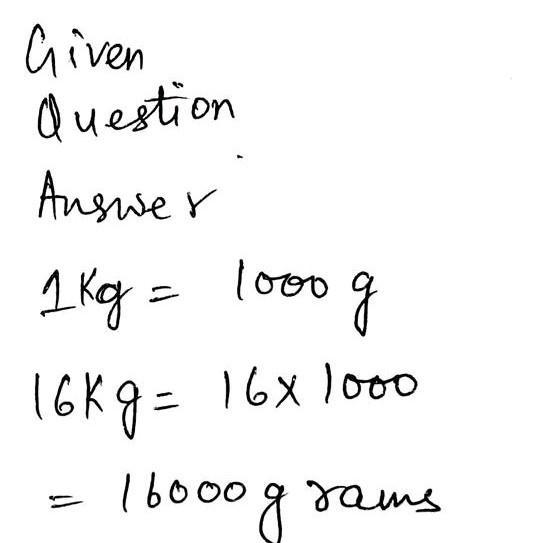 Given
Question
Answer
1Kg = 1000 g
16Kg = 16 x 1000
= 16000 grams